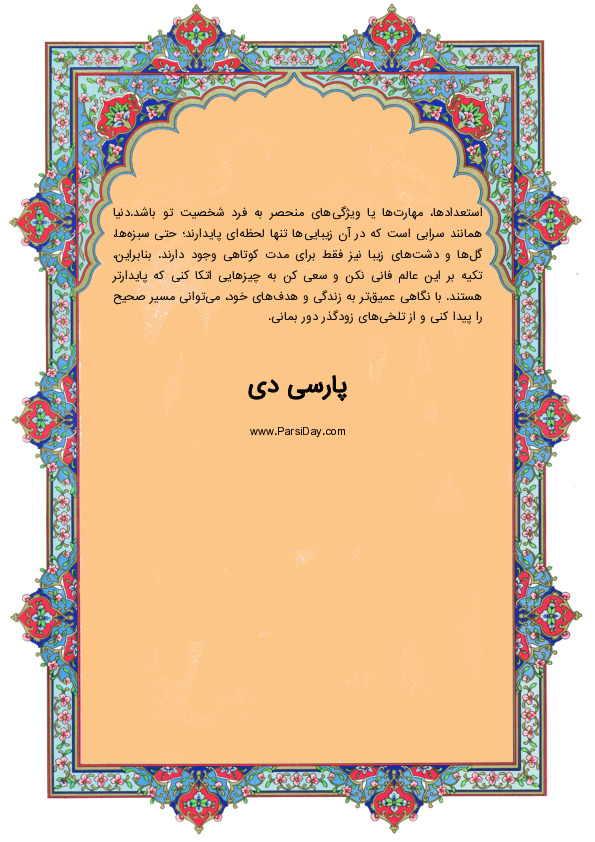 استعدادها، مهارت‌ها یا ویژگی‌های منحصر به فرد شخصیت تو باشد.دنیا
همانند سرابی است که در آن زیبایی‌ها تنها لحظه‌ای پایدارند؛ حتی سبزه‌ها،
گل‌ها و دشت‌های زیبا نیز فقط برای مدت کوتاهی وجود دارند. بنابراین،
تکیه بر این عالم فانی نکن و سعی کن به چیزهایی اتکا کنی که پایدارتر
هستند. با نگاهی عمیق‌تر به زندگی و هدف‌های خود، می‌توانی مسیر صحیح
را پیدا کنی و از تلخی‌های زودگذر دور بمانی.
پارسی دی
www.ParsiDay.com